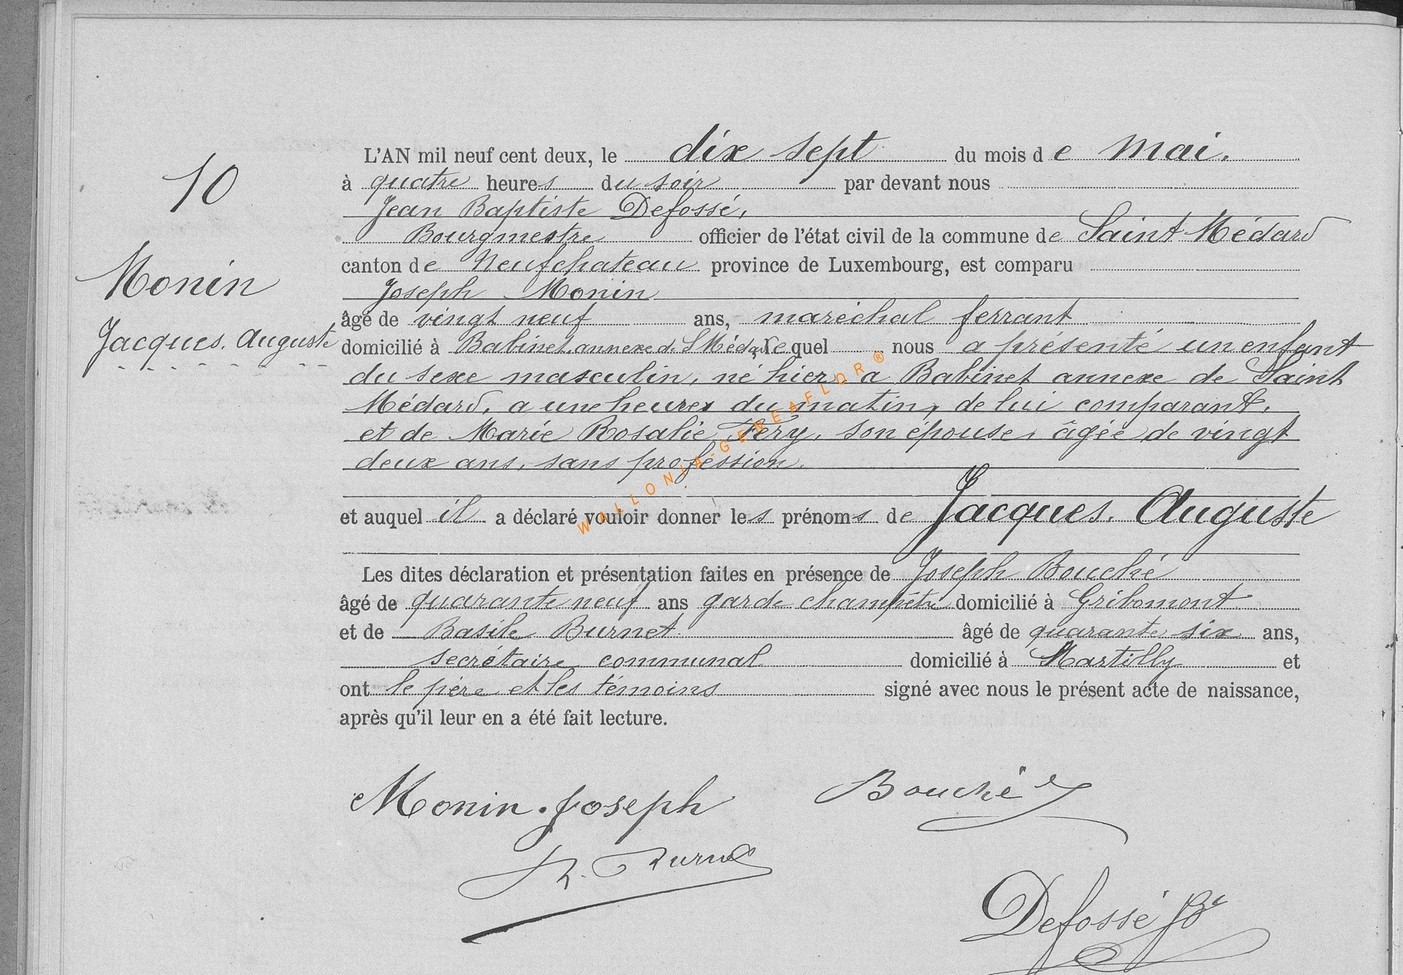 10
Monin
Jacques. Auguste
L'AN mil neuf cent deux, le dix sept du mois de mai.
à quatre heures du soir par devant nous
Jean Baptiste Defossé,
Bourgmestre officier de l'état civil de la commune de Saint Médard
canton de Neufchateau province de Luxembourg, est comparu
Joseph Monin
âgé de vingt neuf ans, maréchal ferrant
domicilié à Babinet annexe de St Médard lequel nous a présenté un enfant
du sexe masculin, né hier, a Babinet annexe de Saint
Médard, a une heures du matin, de lui comparant,
et de Marie Rosalie Féry, son épouse, âgée de vingt
deux ans, sans profession.
et auquel il a déclaré vouloir donner les prénoms de Jacques. Auguste
Les dites déclaration et présentation faites en présence de Joseph Bouché
âgé de quarante neuf ans garde champêtre domicilié à Gribomont
et de Basile Burnet âgé de quarante six ans,
secrétaire communal domicilié à Martilly et
ont le père et les témoins signé avec nous le présent acte de naissance,
après qu'il leur en a été fait lecture.
Monin. Joseph Bouché
Burnet
Defossé JBte
WALLONIA-GENEAFLOR®